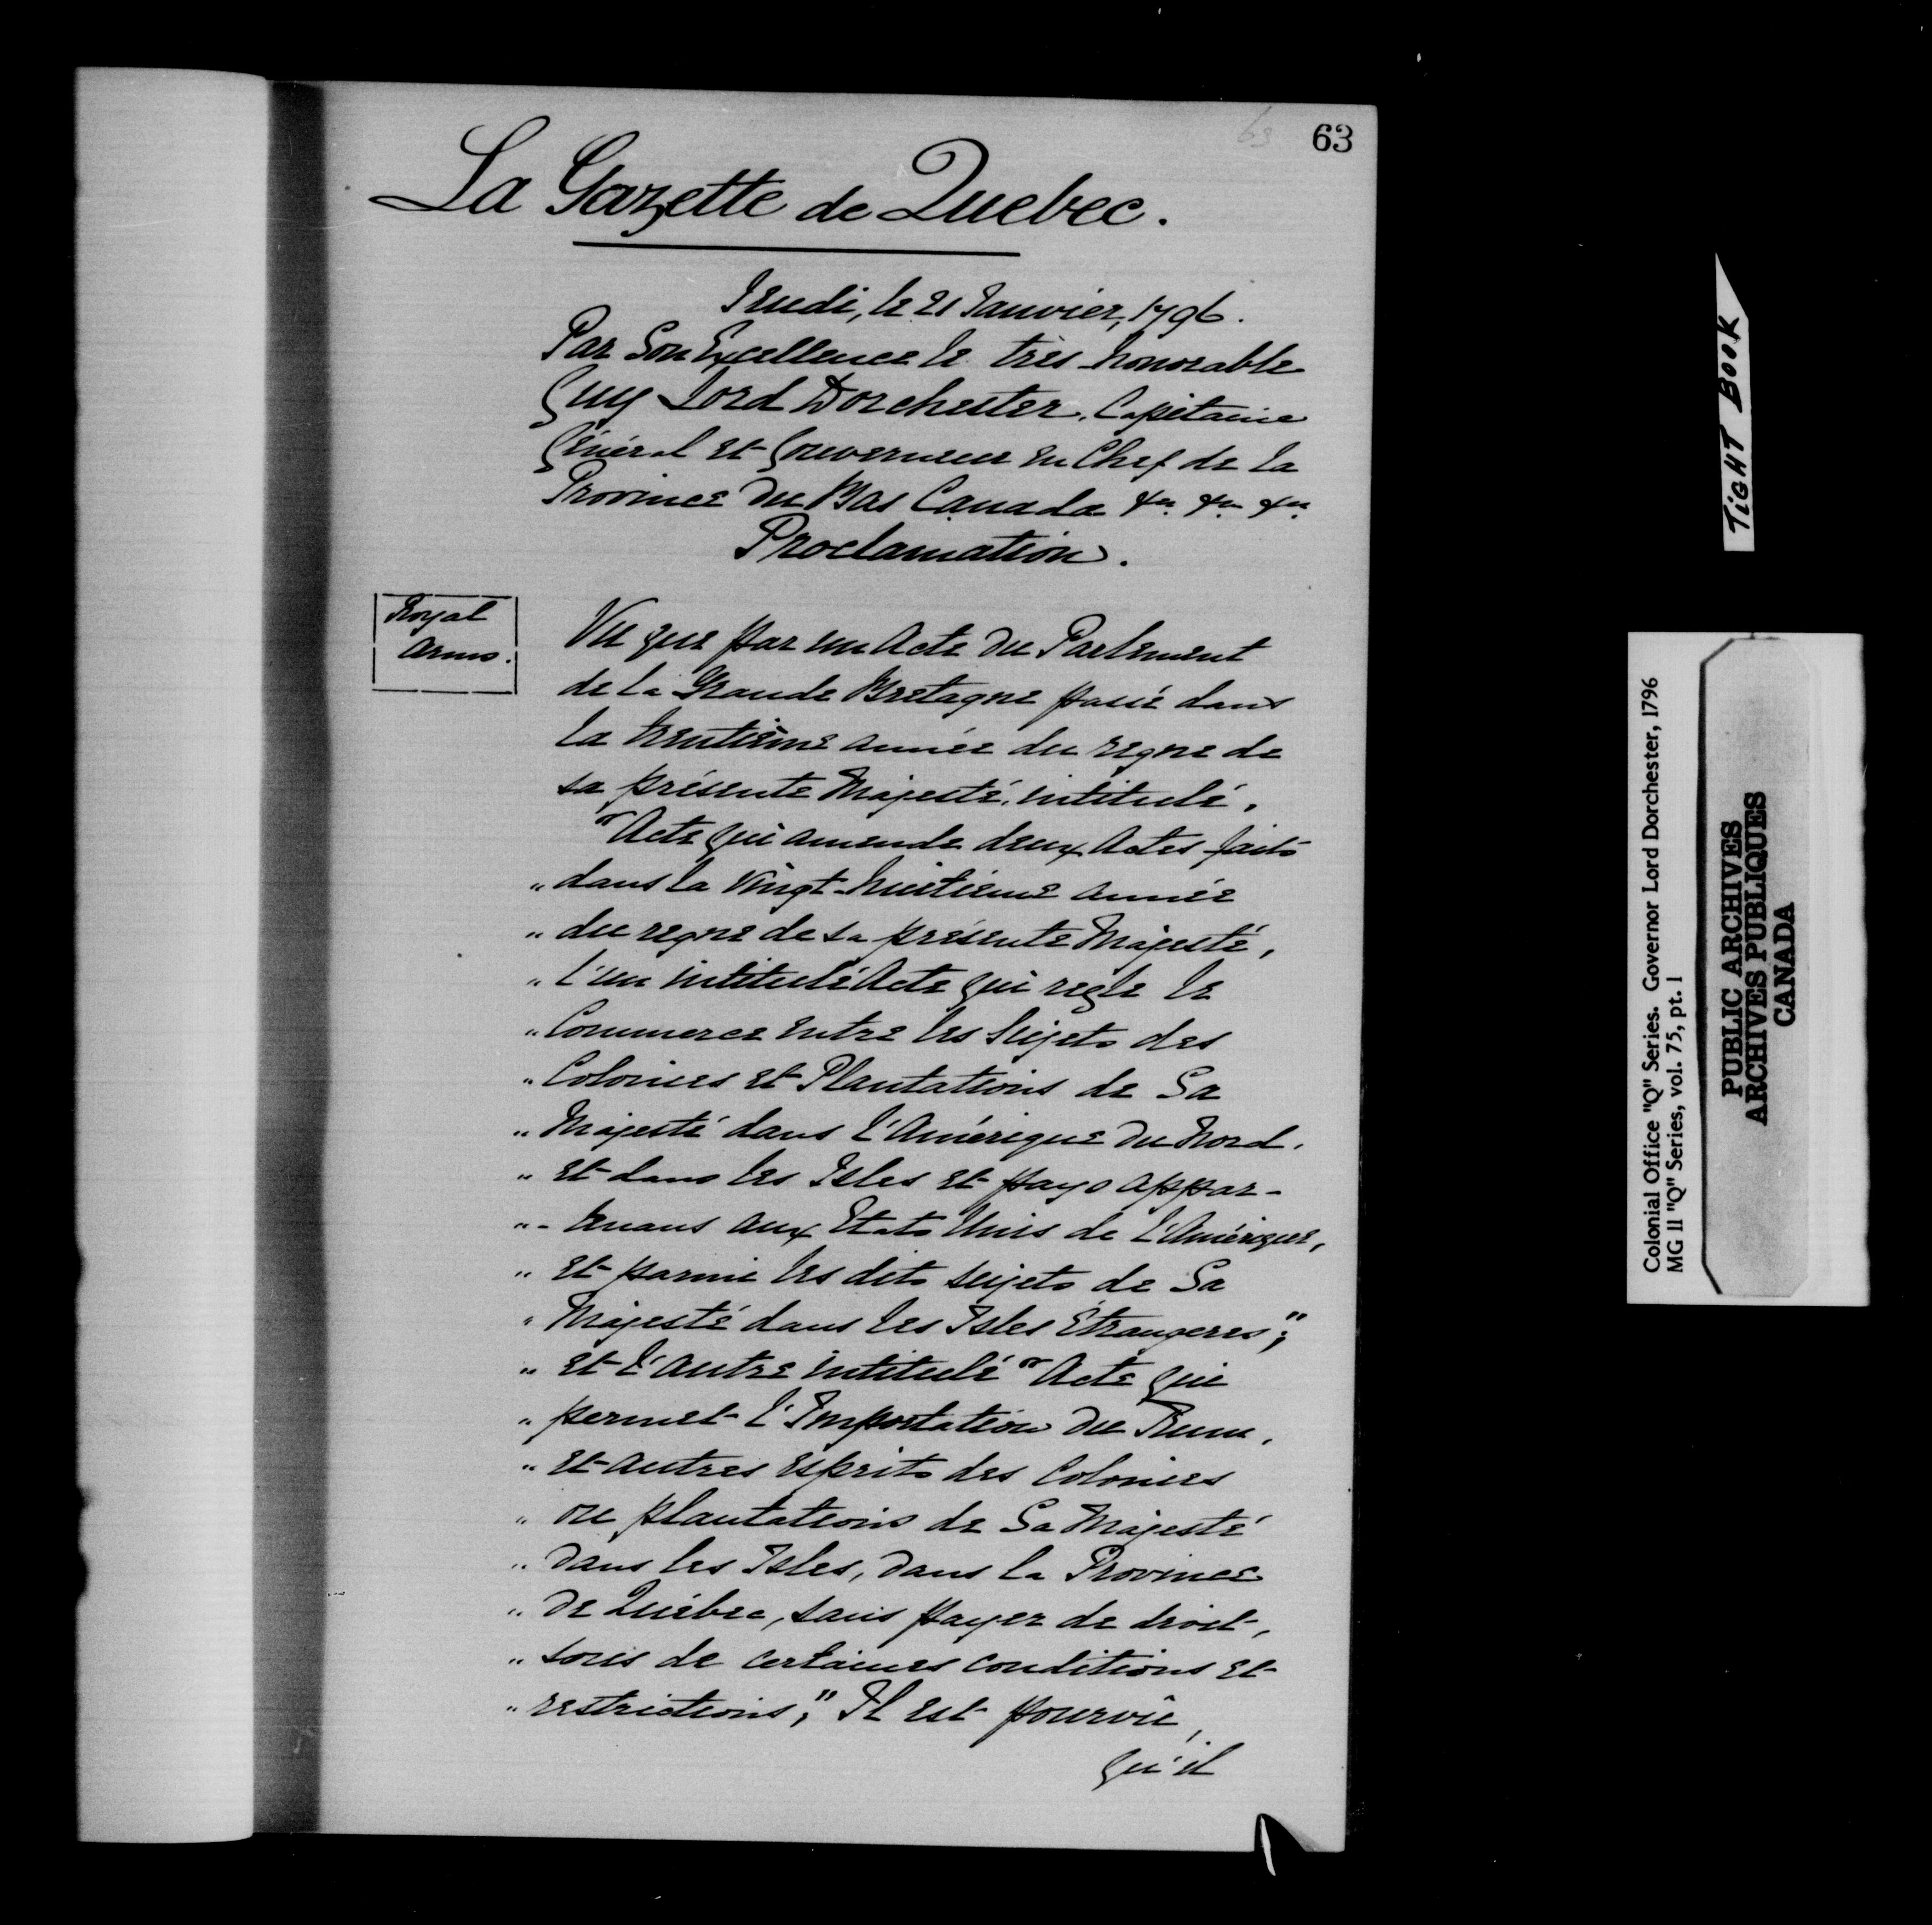 63
63
La Gazette de Quebec.
Jeudi, le 21 Janvier, 1796.
Par Son Excellence le très honorable
Guy Lord Dorchester, Capitaine
Général et Gouverneur en Chef de la
Province du Bas Canada &a. &a. &a.
Proclamation.
Royal
Arms.
Vu que par un Acte du Parlement
de la Grande Bretagne passé dans
la trentième année du regne de
sa présente Majesté, intitulé,
"Acte qui amende deux Actes faits
"dans la vingt-huitieme année
"du regne de sa présente Majesté,
"l'un intitulé Acte qui regle le
"Commerce entre les Sujets des
"Colonies et Plantations de Sa
"Majesté dans l'Amérique du Nord,
"et dans les Isles et pays appar-
"-tenans aux Etats Unis de l'Amérique,
"et parmi les dits sujets de Sa
"Majesté dans les Isles Étrangeres";
"et l'autre intitulé "Acte qui
"permet l'Importation du Rum,
"et autres esprits des Colonies
"ou plantations de Sa Majesté
"dans les Isles, dans la Province
"de Québec, sans payer de droit,
"sous de certaines conditions et
"restrictions;" Il est pourvû,
qu'il
TIGHT BOOK
Colonial Office "Q" Series. Governor Lord Dorchester, 1796
MG 11 "Q" Series, vol. 75, pt. 1
PUBLIC ARCHIVES
ARCHIVES PUBLIQUES
CANADA